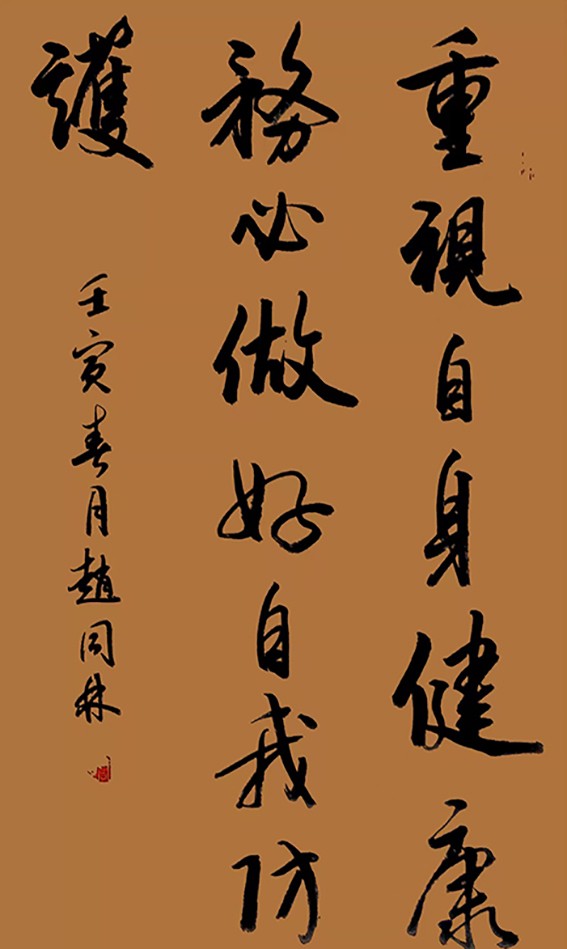 重視自身健康
務必做好自我防
護
壬寅春月趙同林